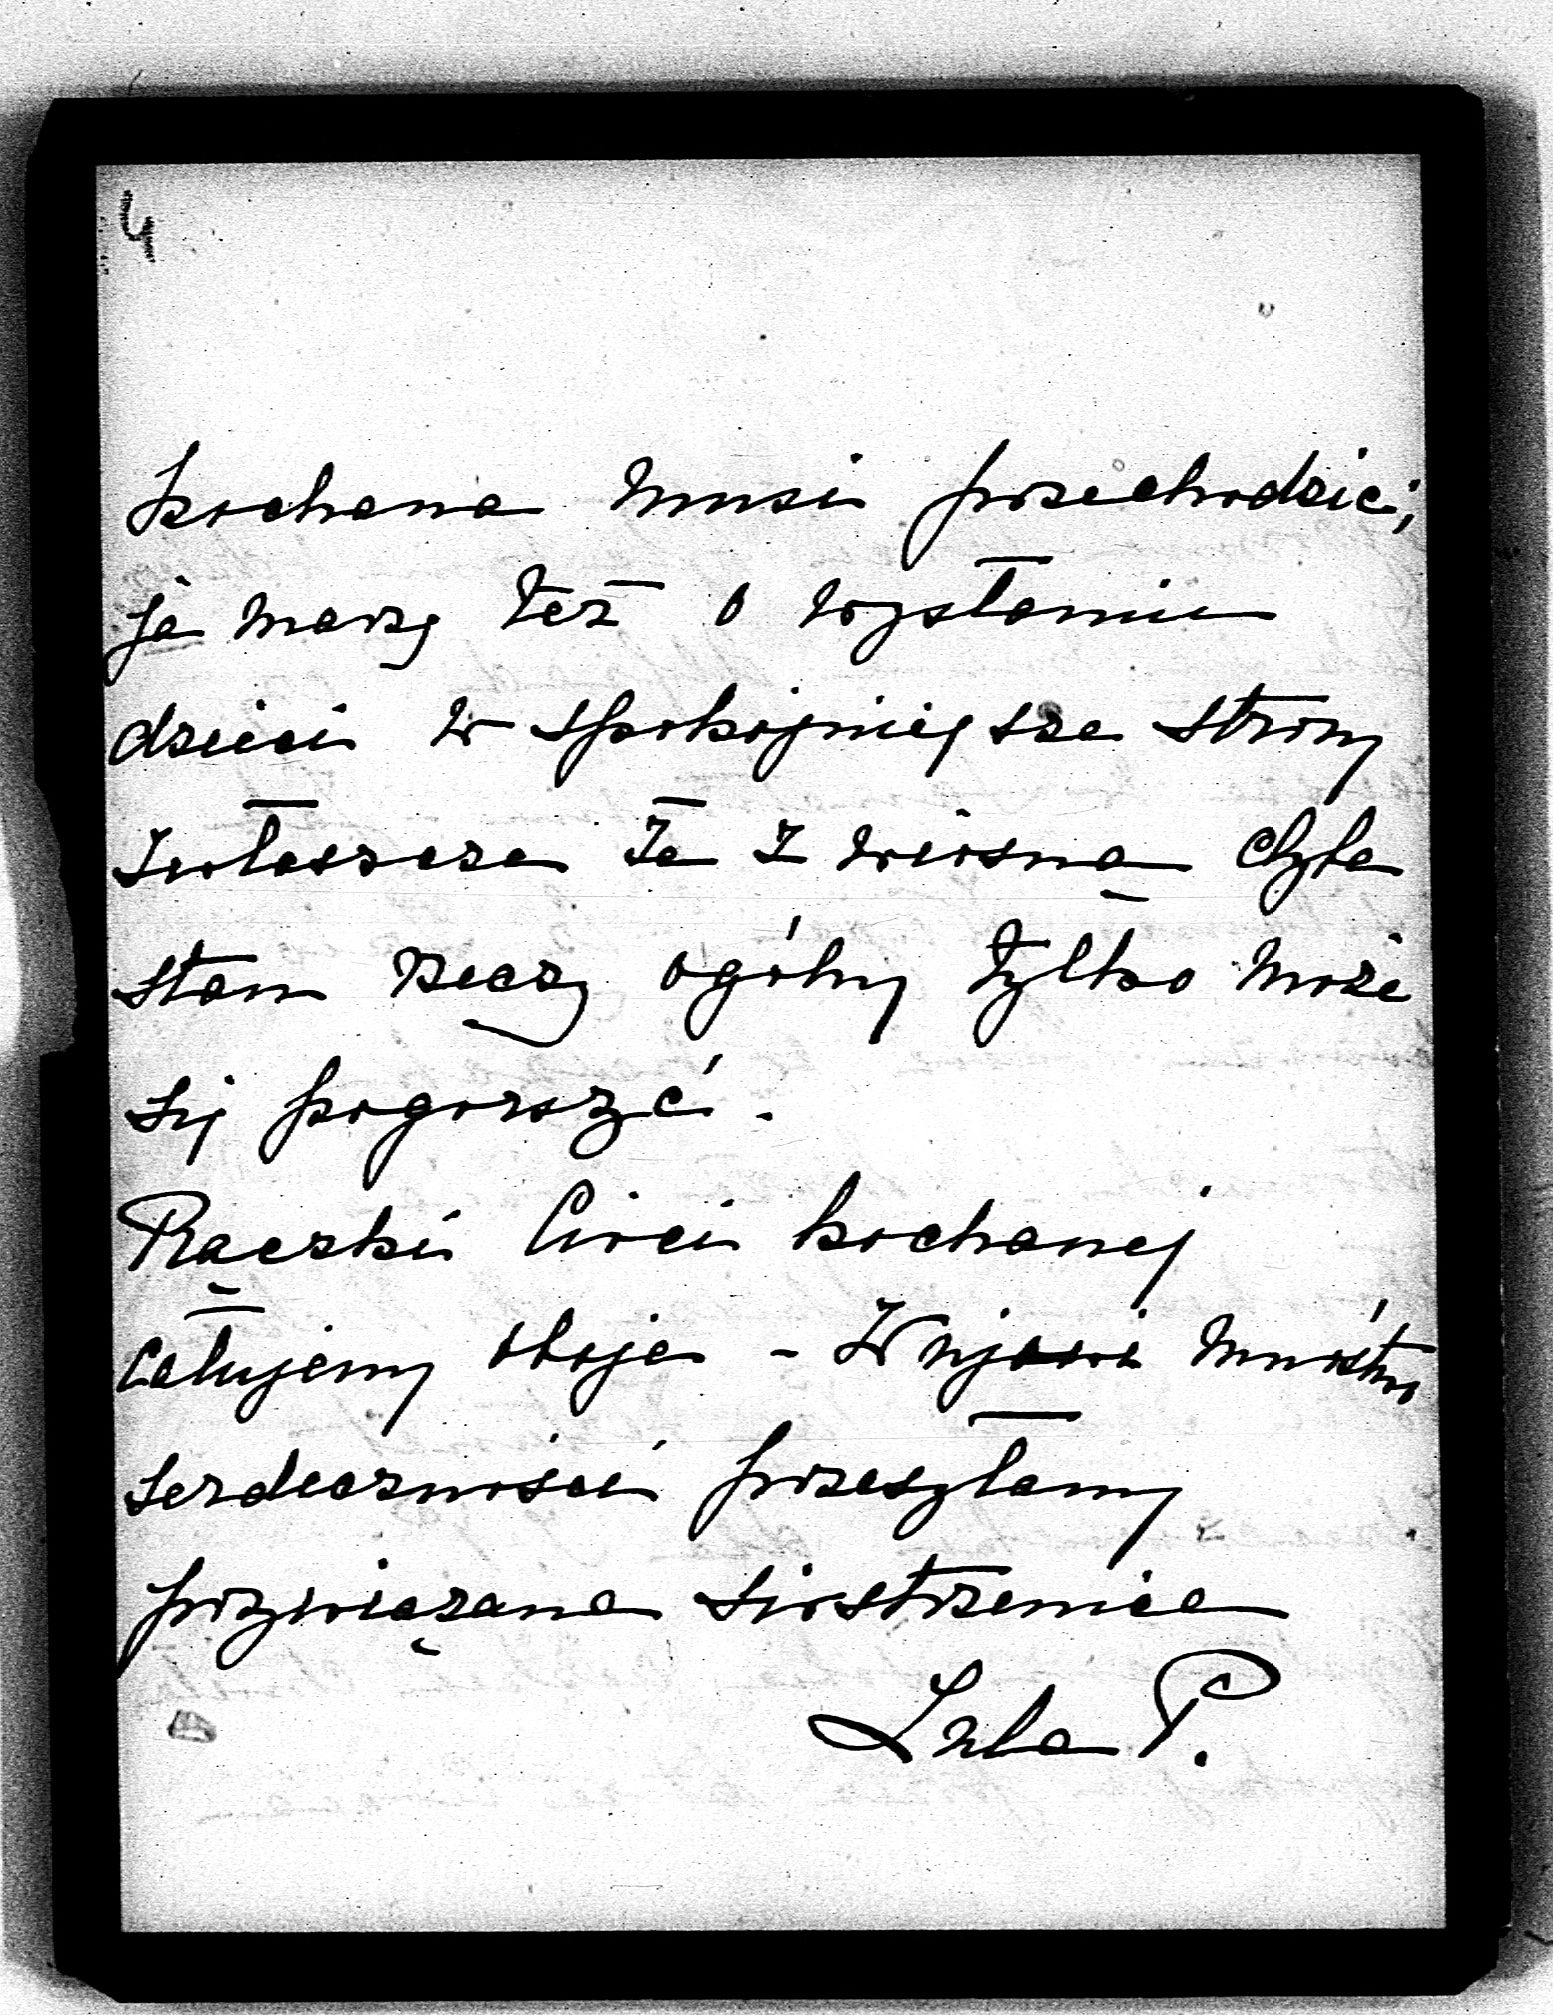 4
kochana musi przechodzić;
ja marzę też o wysłaniu
dzieci w spokojniejsze strony
zwłaszcza że z wiosną chyba
stan rzeczy ogólny tylko może
się pogorszyć.
Rączki Cioci kochanej
całujemy oboje - Wujowi mnóstwo
serdeczności przesyłamy
przywiązana siostrzenica
Lula P.